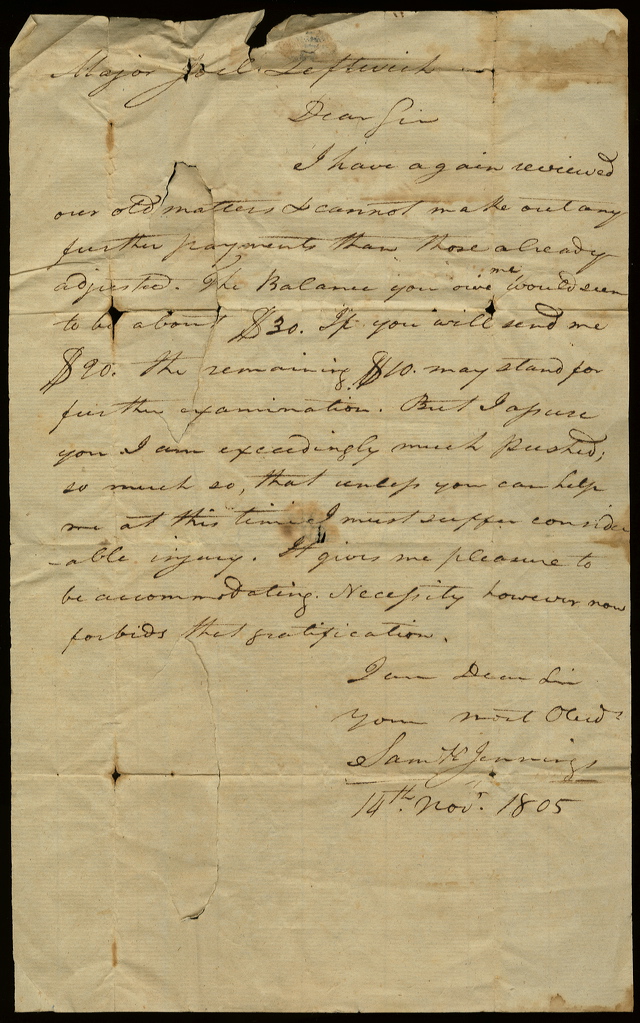 Major Joel Leftwich
Dear Sir
I have again reviewed
our old matters & cannot make out any
further payments than those already
adjusted. The Balance you owe me would seem
to be about $30. If you will send me
$20. the remaining $10. may stand for
further examination. But I assure
you I am exceedingly much pushed;
so much so, that unless you can help
me at this time I must suffer consider
-able injury. It gives me pleasure to
be accommodating. Necessity however now
forbids that gratification.
I am Dear Sir
Your most Obedt
Sam K Jennings
14th. Novr. 1805